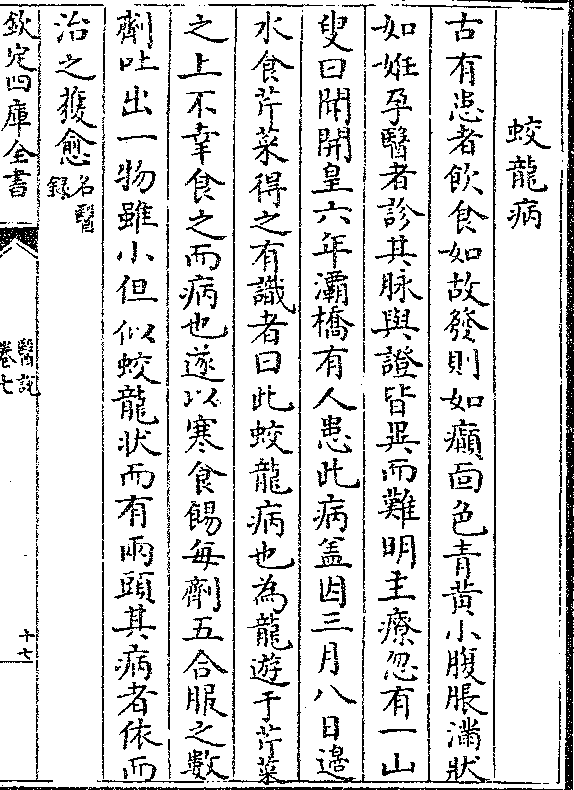 蛟龍病
古有患者飲食如故發則如癲面色青黃小腹脹滿狀
如姙孕醫者診其脉與證皆異而難明主療忽有一山
叟曰聞開皇六年灞橋有人患此病盖因三月八日邉
水食芹菜得之有識者曰此蛟龍病也為龍遊于芹菜
之上不幸食之而病也遂以寒食餳每劑五合服之數
劑吐出一物雖小但似蛟龍状而有兩頭其病者依而
治之獲愈名醫録
欽定四庫全書
醫說
卷七
十七